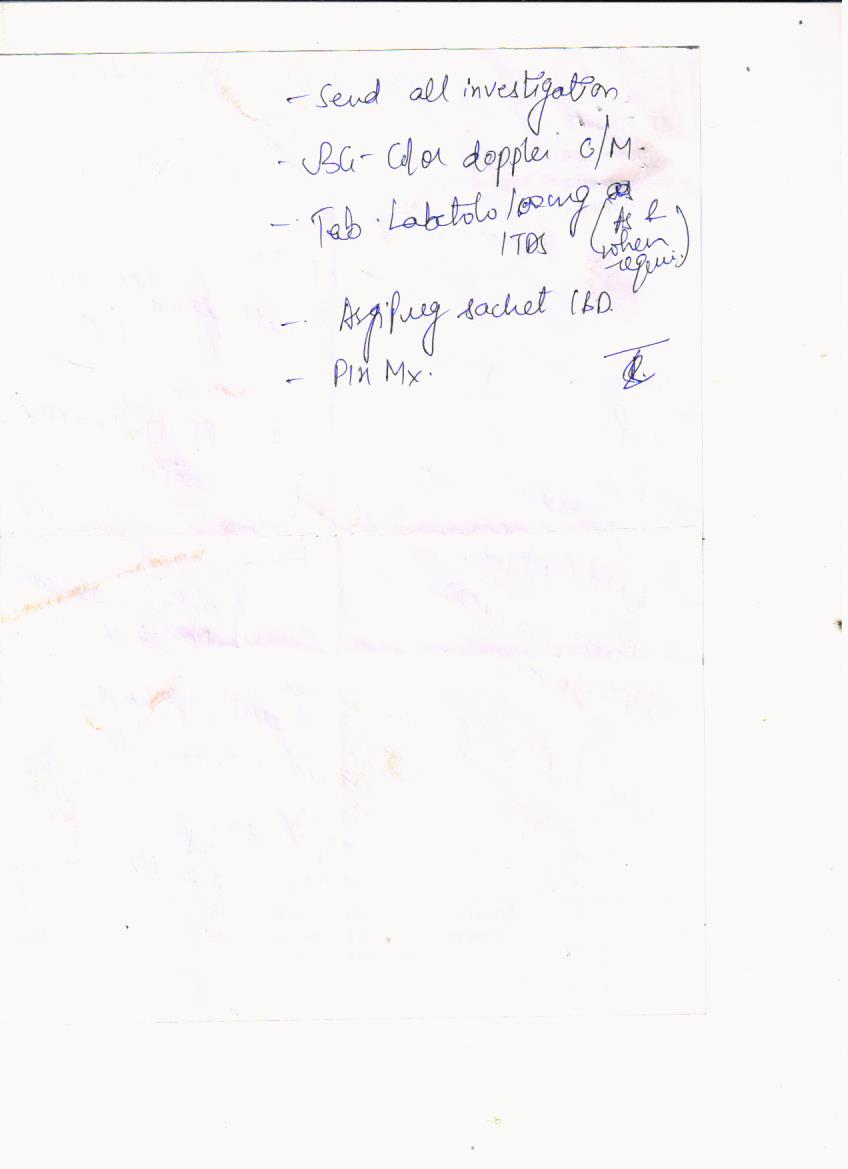 - Send all investigation
- USG - Color doppler C/M.
- Tab. Labetolo 100mg
1 TDS (As & when requi.)
- Argipreg sachet 1 BD
- PIH Mx.